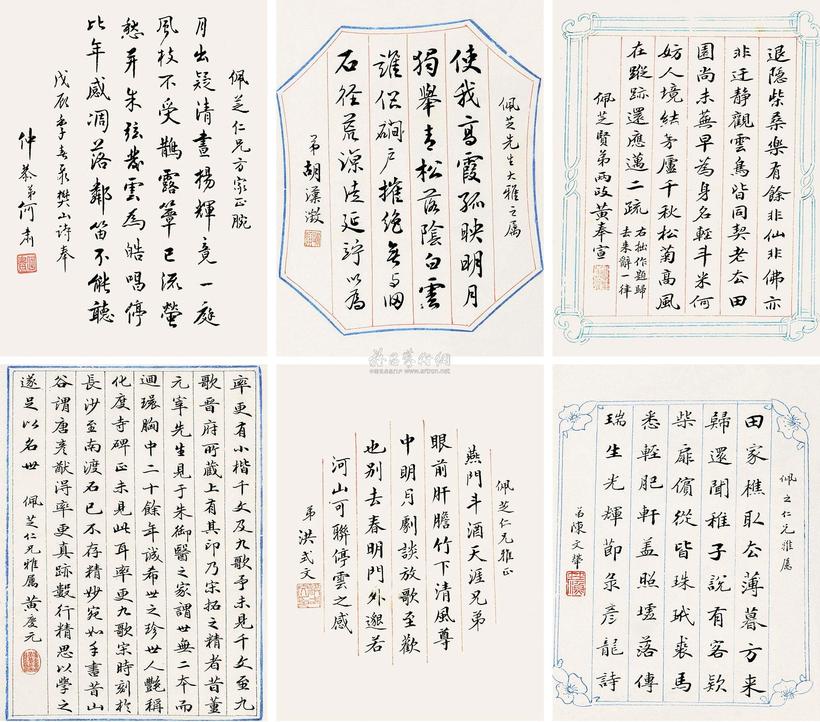 佩芝仁兄方家正腕
月出疑清晝揚輝竟一庭
風枝不受鵲露簟已流螢
愁弄朱弦發雲為皓唱停
比年感凋落鄰笛不能聽
戊辰季春录樊山诗奉
仲恭弟何肅
佩芝先生大雅之属
使我高霞孤映明月
獨舉青松落陰白雲
誰侶磵戶摧絕無与歸
石徑荒涼徒延竚以為
弟胡漢澂
退隱柴桑樂有餘非仙非佛亦
非迂靜觀雲鳥皆同契老去田
園尚未蕪早為身名輕斗米何
妨人境結茅廬千秋松菊高風
在蹤跡還應邁二疏
右拙作題歸
去来辭一律
佩芝賢弟兩政黃奉宣
率更有小楷千文及九歌予未見千文至九
歌晉府所藏上有其印乃宋拓之精者昔董
元宰先生見于朱御醫之家謂世無二本而
迴環胸中二十餘年誠希世之珍世人艷稱
化度寺碑正未見此耳率更九歌宋時刻於
長沙至南渡石已不存精妙宛如手書昔山
谷謂唐彥猷得率更真跡數行精思以學之
遂足以名世
佩芝仁兄雅属黄慶元
佩芝仁兄雅正
燕門斗酒天涯兄弟
眼前肝膽竹下清風尊
中明月劇談放歌至歡
也別去春明門外邈若
河山可聯停雲之感
弟洪式文
佩之仁兄雅属
田家樵取去薄暮方来
歸還聞稚子說有客欵
柴扉儐從皆珠玳裘馬
悉輕肥軒盖照墟落傳
瑞生光輝節录彥龍詩
弟陳文肇